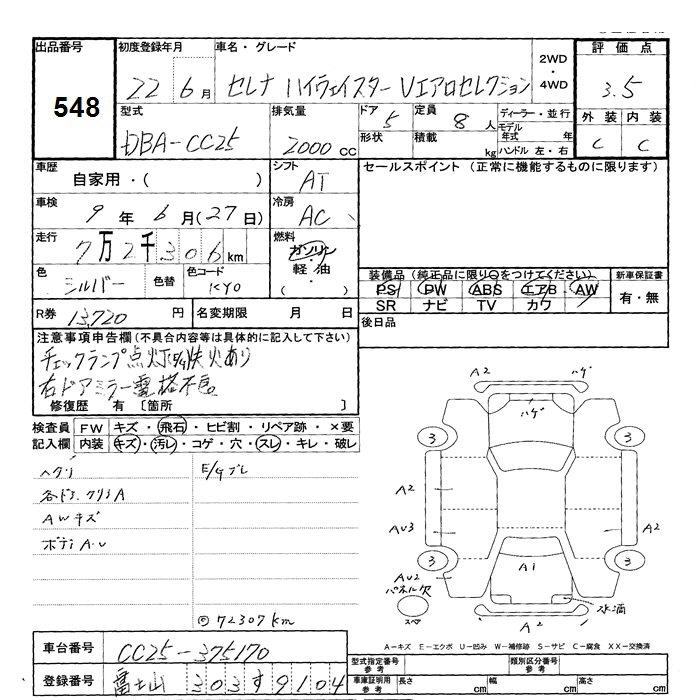 出品番号 初度登録年月 車名・グレード 2WD・4WD 評価点
548 22 6月 セレナ ハイウェイスター Vエアロセレクション 3.5
型式 排気量 ドア 5 定員 8人 ディーラー・並行 外装 内装
DBA-CC25 2000cc 形状 積載 kg モデル年式 年 ハンドル 左・右 C C
車歴 シフト セールスポイント (正常に機能するものに限ります)
自家用・( ) AT
車検 冷房
9年 6月(27日) AC
走行 燃料
7万2千306km ガソリン 軽油 ( )
色 シルバー 色替 色コード KY0
装備品 (純正品に限り○をつけてください) 新車保証書
PS PW ABS エアB AW 有・無
SR ナビ TV カワ
R券 13,720円 名変期限 月 日 後日品
注意事項申告欄(不具合内容等は具体的に記入して下さい)
チェックランプ点灯 失火あり
右ドアミラー電格不良
修復歴 有 [箇所 ]
検査員 FW キズ・飛石・ヒビ割・リペア跡・×要
記入欄 内装 キズ・汚レ・コゲ・穴・スレ・キレ・破レ
ヘタリ E/Gブレ
各ドア.クリアA
AWキズ
ボディA.U
72307km
A2 ハゲ
ハゲ
3 3
A2
AU3 A2
3 3
A1
AU2
パネル欠
スペア
水滴
A2
A-キズ E-エクボ U-凹み W-補修跡 S-サビ C-腐食 XX-交換済
車台番号 CC25-375170
型式指定番号 参考 類別区分番号 参考
登録番号 富士山 303 す 9104
車庫証明用 参考 長さ cm 幅 cm 高さ cm